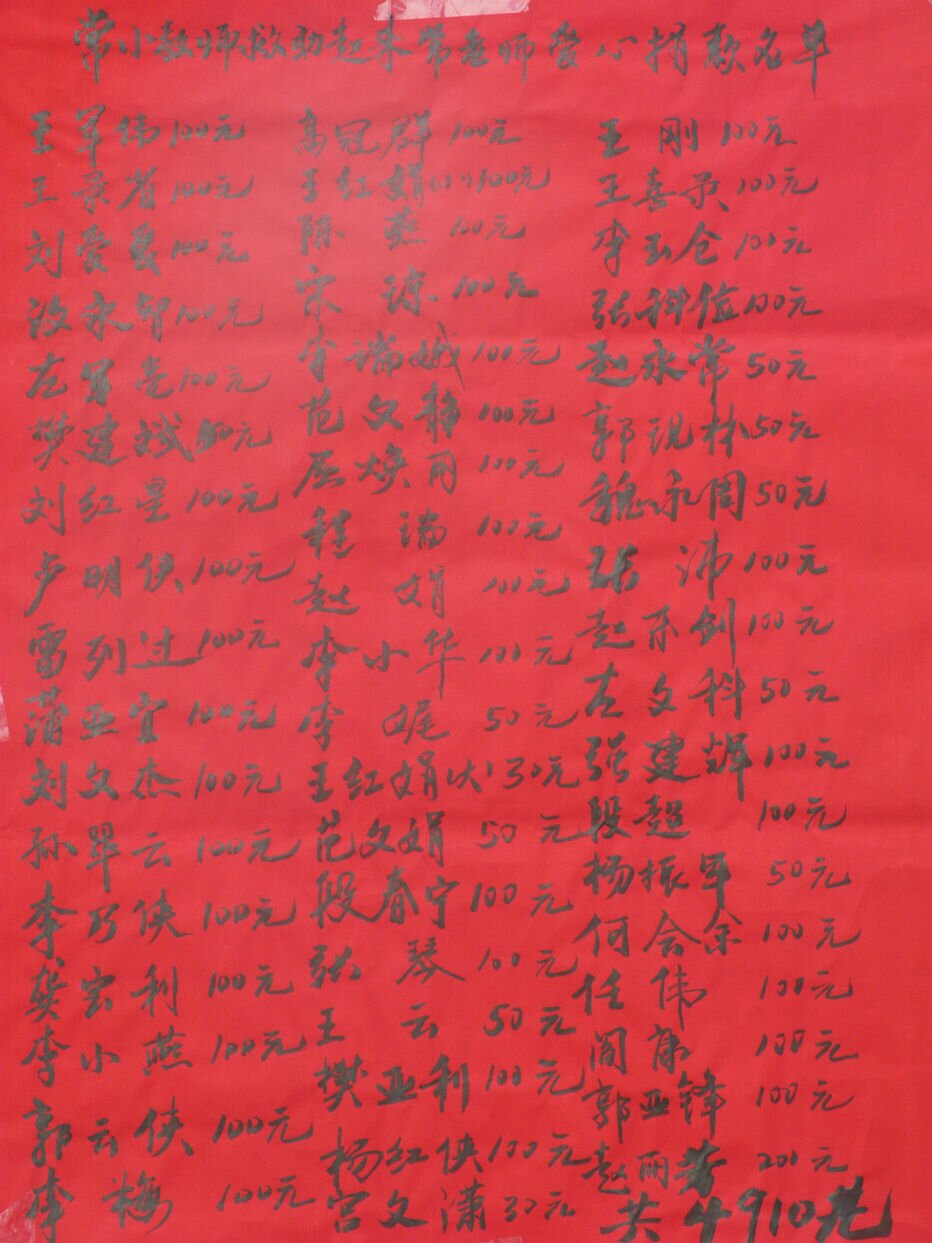 常小教师救助赵来常老师爱心捐款名单
王军伟100元 高冠群100元 王刚100元
王录省100元 王红娟(小)100元 王喜录100元
刘爱夏100元 陈燕100元 李云仓100元
永智100元 宋 100元 张科位100元
左省亮100元 李瑞娥100元 赵永常50元
樊建斌50元 范文静100元 郭现林50元
刘红星100元 屈焕丽100元 魏永周50元
卢明侠100元 程瑞100元 张沛100元
雷列过100元 赵娟100元 赵乐剑100元
蒲亚宜100元 李小华100元 左文科50元
刘文杰100元 李娓50元 张建辉100元
孙翠云100元 王红娟(大)50元 段超100元
李巧侠100元 范文娟50元 杨振军50元
龚宏利100元 段春宁100元 何会余100元
李小燕100元 张琴100元 任伟100元
郭云侠100元 王云50元 阎康100元
李梅100元 樊亚利100元 郭亚锋100元
杨红侠100元 赵丽芳200元
宫文潇30元 共4910元